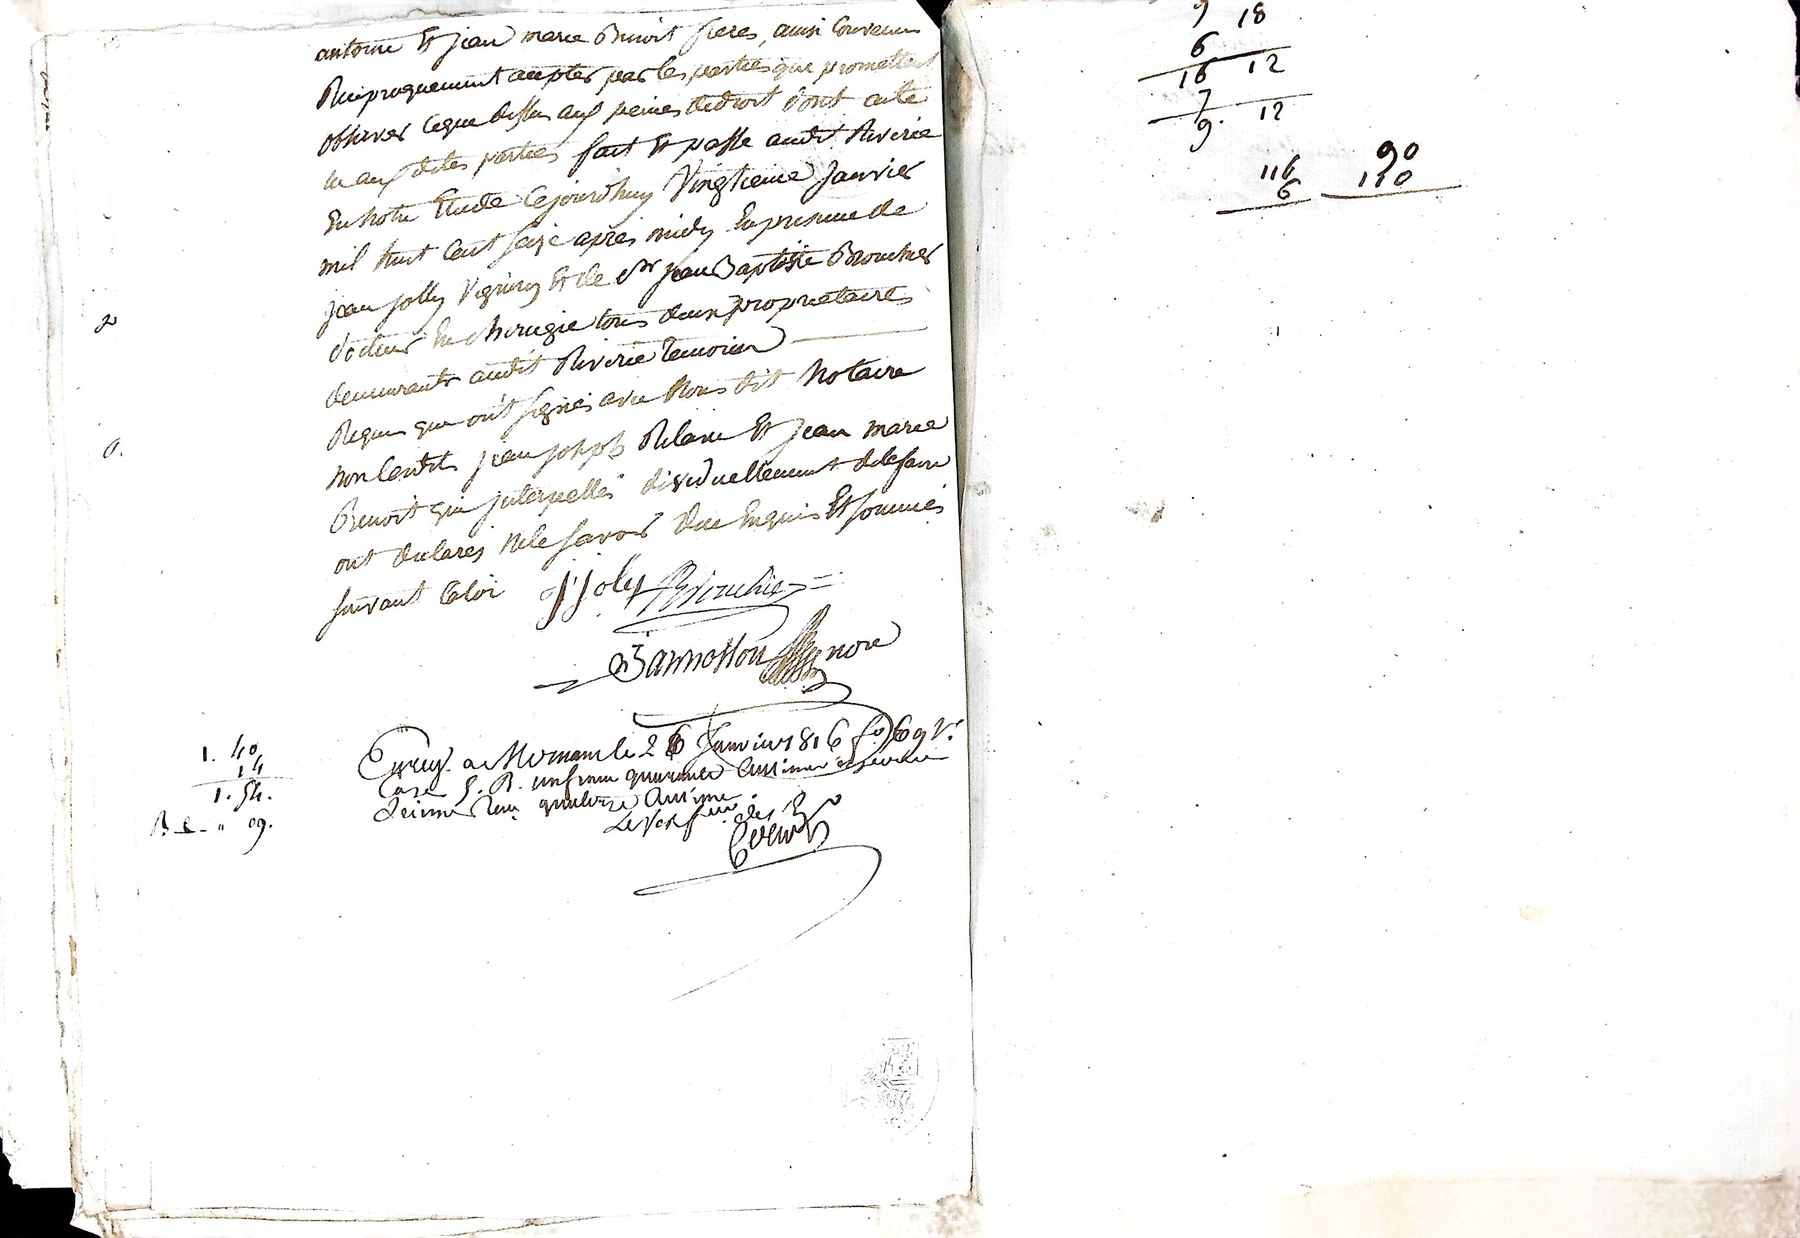 antoine Et jean marie Benoit freres, ainsi Convenu
Reciproquement accepter par les parties qui promettent
observer ceque dessus aux peines de droit dont acte
lu aux dites parties fait Et passe audit Riverie
En notre Etude Cejourdhuy Vingtieme Janvier
mil huit Cent seize apres midy En presence de
jean jolly Vigneron Et de sr jean Baptiste Brouchier
docteur En chirugie tous deux proprietaires
demeurants audit Riverie Temoins
Requis qui ont signés avec Nous dit Notaire
non lesdits jean joseph Et jean marie
Benoit qui interpellés dividuellement de le faire
ont declares ne le savoir Enquis Et sommés
suivant la loi J Joly Brouchier
nore
1. 40
14
1. 54.
09.
Enreg. a Mornant le 26 Janvier 1816 fo 69 Vo
Case 5. R. un franc quarante Centimes
dixieme quatorze Centimes
9 18
6
16 12
7
9. 12
90
116 110
6